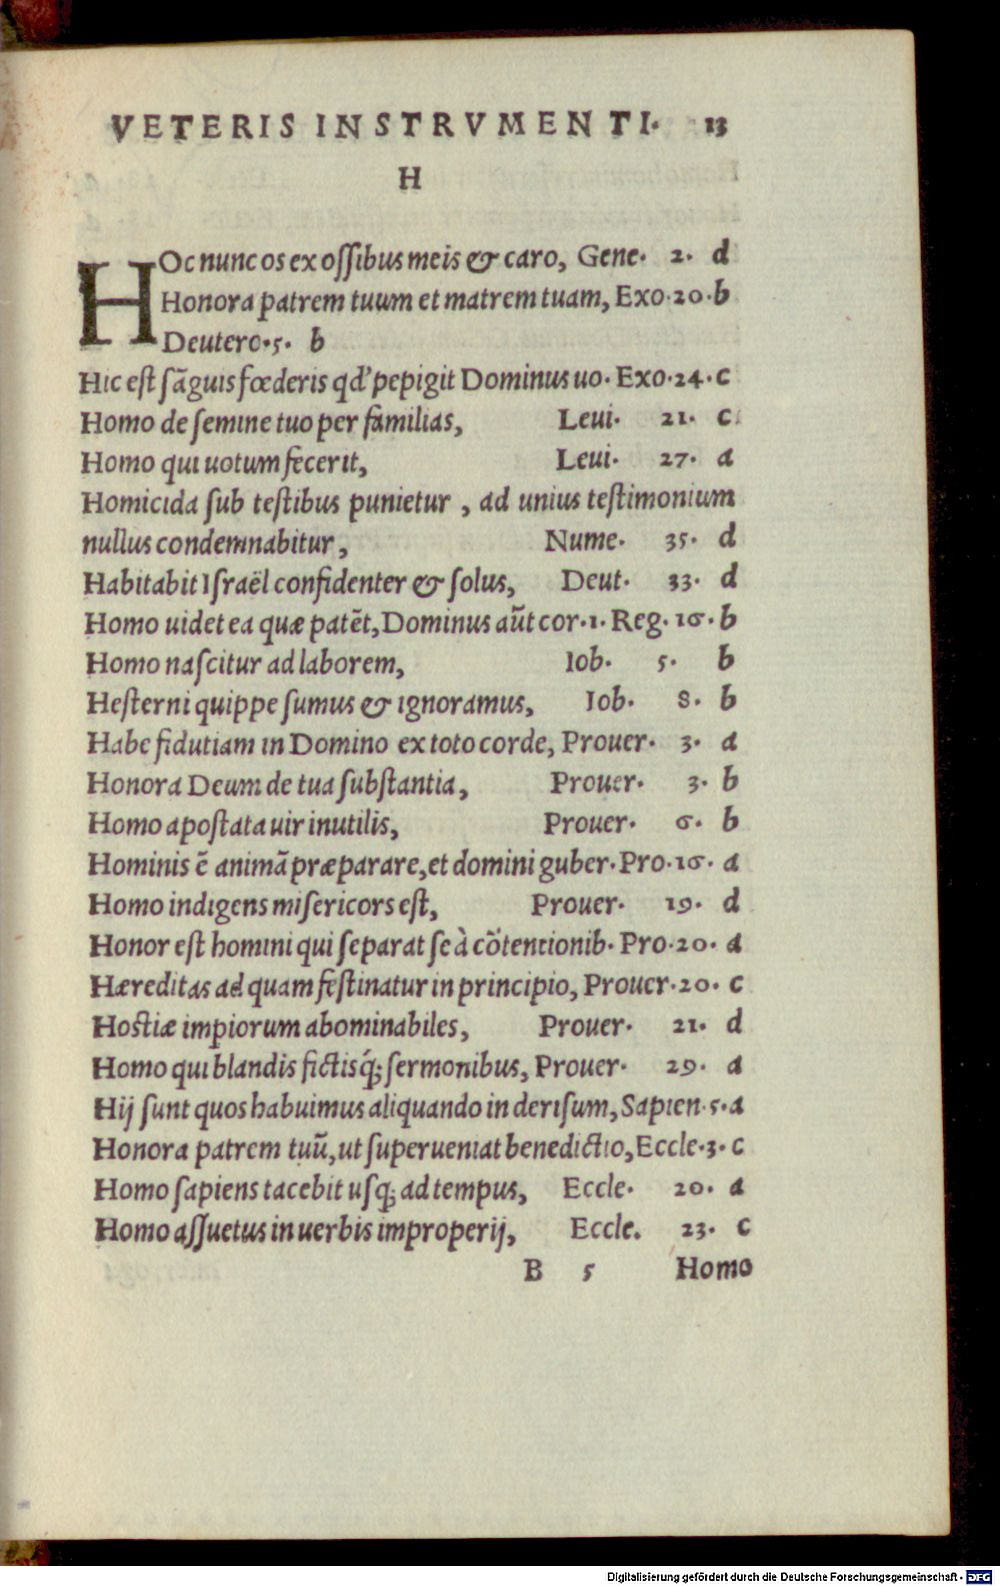 VETERIS INSTRVMENTI. 13
H
HOc nunc os ex oſſibus meis & caro, Gene. 2. d
Honora patrem tuum et matrem tuam, Exo.20.b
Deutero.5. b
Hic eſt ſãguis fœderis qd' pepigit Dominus uo. Exo.24.c
Homo de ſemine tuo per familias, Leui. 21. c.
Homo qui uotum fecerit, Leui. 27. a
Homicida ſub teſtibus punietur , ad unius teſtimonium
nullus condemnabitur, Nume. 35. d
Habitabit Iſraël confidenter & ſolus, Deut. 33. d
Homo uidet ea quæ patẽt, Dominus aũt cor.1. Reg. 16.b
Homo naſcitur ad laborem, Iob. 5. b
Heſterni quippe ſumus & ignoramus, Iob. 8. b
Habe fidutiam in Domino ex toto corde, Prouer. 3. a
Honora Deum de tua ſubſtantia, Prouer. 3. b
Homo apoſtata uir inutilis, Prouer. 6. b
Hominis ẽ animã præparare, et domini guber. Pro.16. a
Homo indigens miſericors eſt, Prouer. 19. d
Honor eſt homini qui ſeparat ſe à cõtentionib. Pro.20. a
Hæreditas ad quam feſtinatur in principio, Prouer.20. c
Hoſtiæ impiorum abominabiles, Prouer. 21. d
Homo qui blandis fictisq́; ſermonibus, Prouer. 29. a
Hij ſunt quos habuimus aliquando in deriſum, Sapien.5.a
Honora patrem tuũ, ut ſuperueniat benedictio, Eccle.3. c
Homo ſapiens tacebit uſq; ad tempus, Eccle. 20. a
Homo aſſuetus in uerbis improperij, Eccle. 23. c
B 5 Homo
Digitalisierung gefördert durch die Deutsche Forschungsgemeinschaft - DFG